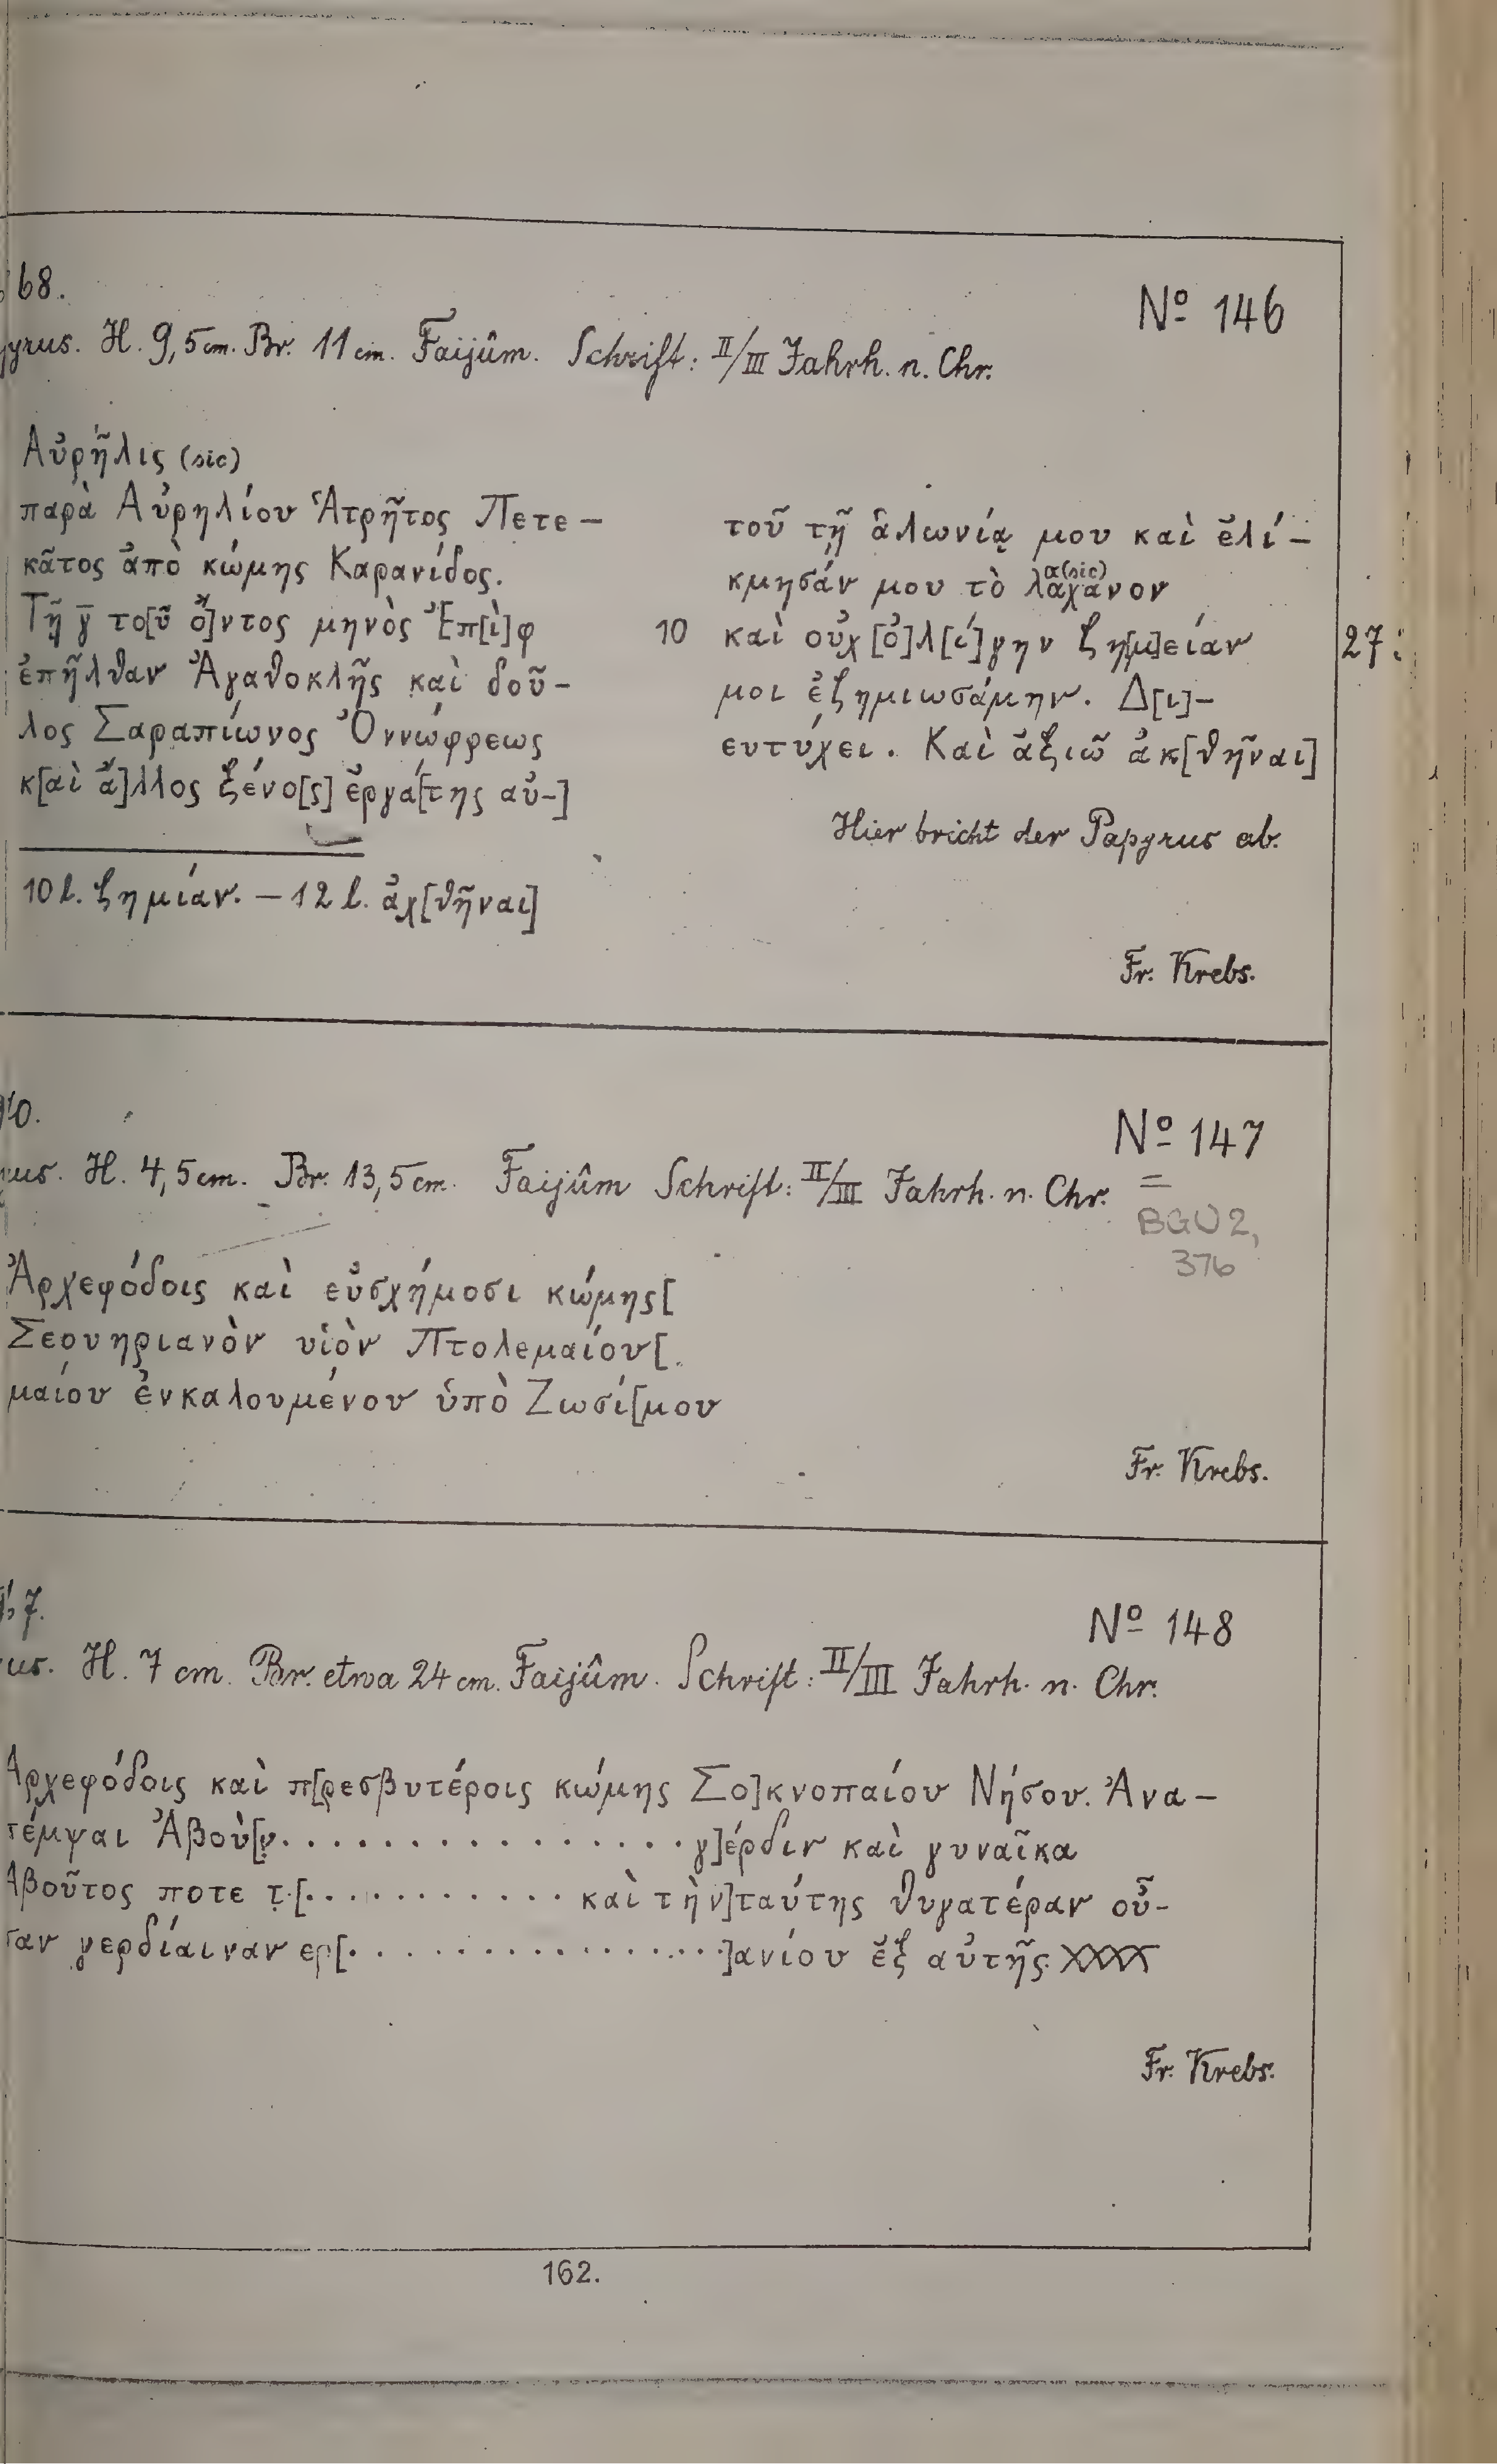 68.
Nº 146
H. 9,5 cm. Br. 11 cm. Faijûm. Schrift: II/III Jahrh. n. Chr.
Αὐρῆλις (sic)
παρὰ Αὐρηλίου Ἁτρῆτος Πετε–
κᾶτος ἀπὸ κώμης Καρανίδος.
Τῇ γ̅ το[ῦ ὄ]ντος μηνὸς Ἐπ[ὶ]φ
ἐπῆλθαν Ἀγαθοκλῆς καὶ δοῦ–
λος Σαραπίωνος Ὀννώφρεως
κ[αὶ ἄ]λλος ξένο[ς] ἐργά[της αὐ–]
τοῦ τῇ ἁλωνίᾳ μου καὶ ἐλί–
κμησάν μου τὸ λαχανον
α(sic)
10 καὶ οὐχ [ὀ]λ[ί]γην ζη[μ]είαν
27
μοι ἐζημιωσάμην. Δ[ι]–
ευτύχει. Καὶ ἀξιῶ ἀκ[θῆναι]
Hier bricht der Papyrus ab.
10 l. ζημίαν. – 12 l. ἀχ[θῆναι]
Fr. Krebs.
Nº 147
H. 4,5 cm. Br. 13,5 cm. Faijûm Schrift: II/III Jahrh. n. Chr.
=
BGU 2,
376
Ἀρχεφόδοις καὶ εὐσχήμοσι κώμης[
Σεουηριανὸν υἱὸν Πτολεμαίου[.
μαίου ἐνκαλουμένου ὑπὸ Ζωσί[μου
Fr. Krebs.
7.
Nº 148
H. 7 cm. Br. etwa 24 cm. Faijûm. Schrift: II/III Jahrh. n. Chr.
Ἀρχεφόδοις καὶ π[ρεσβυτέροις κώμης Σο]κνοπαίου Νήσου. Ἀνα–
πέμψαι Ἀβοὺ[ν . . . . . . . . . . . . . . . . . γ]έρδιν καὶ γυναῖκα
Ἀβοῦτος ποτε τ.[. . . . . . . . . . . . καὶ τὴν] ταύτης θυγατέραν οὖ–
σαν γερδίαιναν ερ[. . . . . . . . . . . . . . . . .]ανίου ἐξ αὐτῆς. XXXX
Fr. Krebs.
162.